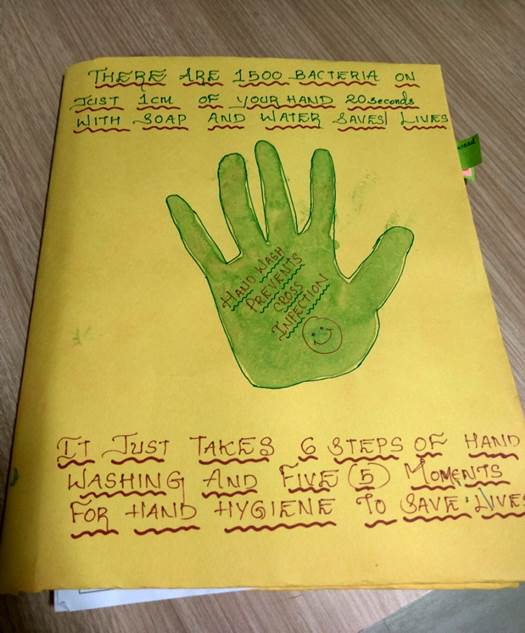 THERE ARE 1500 BACTERIA ON
JUST 1CM OF YOUR HAND 20 seconds
WITH SOAP AND WATER SAVES LIVES
HAND WASH
PREVENTS
CROSS
INFECTION
IT JUST TAKES 6 STEPS OF HAND
WASHING AND FIVE (5) MOMENTS
FOR HAND HYGIENE TO SAVE LIVES